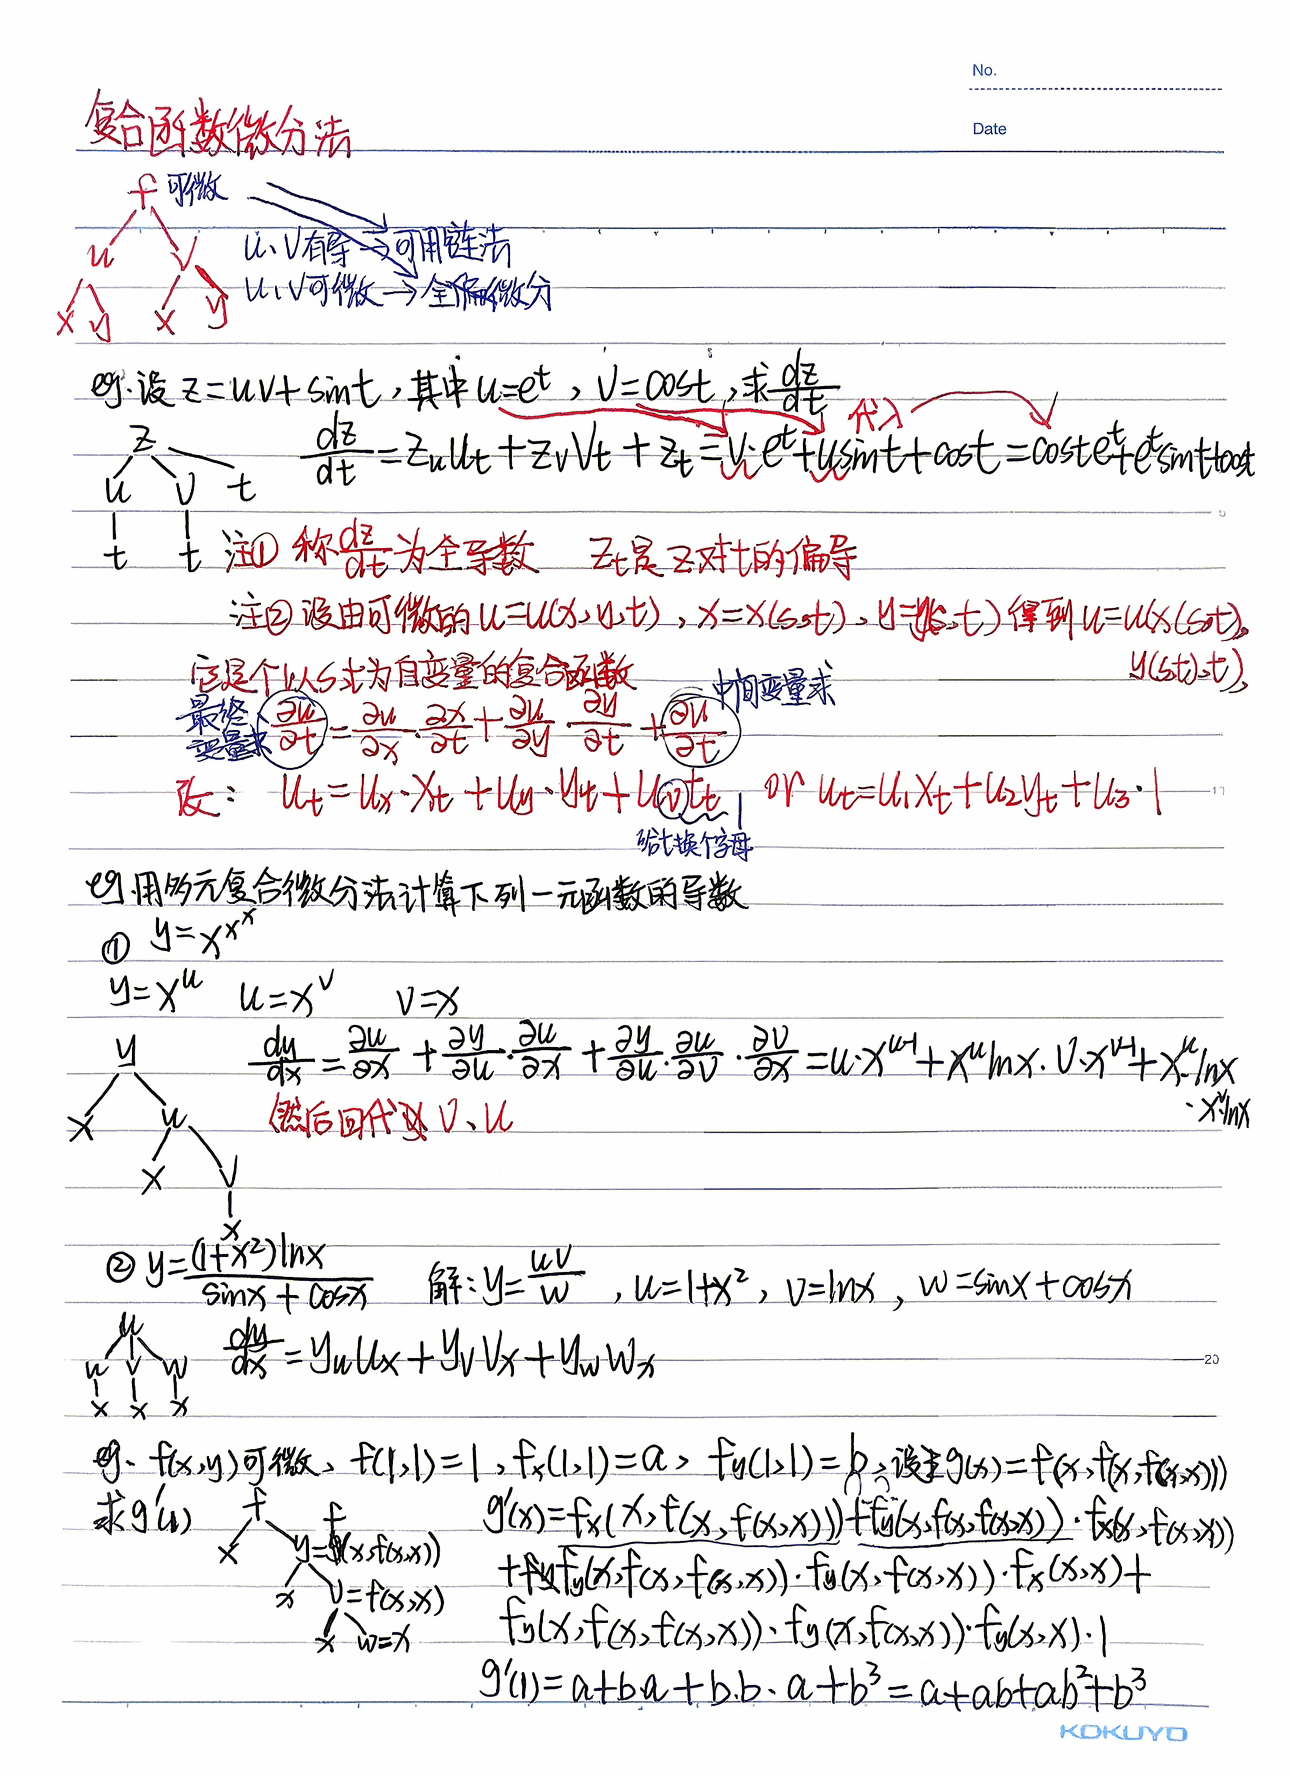 No.
Date
复合函数微分法
f 可微
u v
x y x y
u、v有导 → 可用链法
u、v可微 → 全微分
eg.设 z=uv+sint,其中u=e^t,v=cost,求dz/dt
代入
z
u v t
t t
dz/dt=z_u u_t+z_v v_t+z_t=v·e^t+usint+cost=coste^t+e^tsint+cost
注① 称dz/dt为全导数 z_t是z对t的偏导
注②设由可微的u=u(x,y,t),x=x(s,t),y=y(s,t)得到u=u(x(s,t),
y(s,t),t),
它是个以s,t为自变量的复合函数
最终变量求 ∂u/∂t=∂u/∂x·∂x/∂t+∂u/∂y·∂y/∂t+∂u/∂t 中间变量求
改: u_t=u_x·x_t+u_y·y_t+u_v t_t or u_t=u_1x_t+u_2y_t+u_3·1
给t换个字母
1
eg.用多元复合微分法计算下列一元函数的导数
① y=x^x^x
y=x^u u=x^v v=x
y
x u
x v
x
dy/dx=∂u/∂x+∂y/∂u·∂u/∂x+∂y/∂u·∂u/∂v·∂v/∂x=u·x^{u-1}+x^u lnx·v·x^{v-1}+x^u·lnx
·x^v·lnx
然后回代 v、u
② y=(1+x²)lnx/(sinx+cosx) 解:y=uv/w,u=1+x²,v=lnx,w=sinx+cosx
u
u v w
x x x
dy/dx=y_u u_x+y_v v_x+y_w w_x
20
eg、f(x,y)可微、f(1,1)=1,f_x(1,1)=a,f_y(1,1)=b,设g(x)=f(x,f(x,f(x,x)))
求g'(1)
f
x y=f(x,f(x,x))
x v=f(x,x)
x w=x
g'(x)=f_x(x,f(x,f(x,x)))+f_y(x,f(x,f(x,x)))·f_x(x,f(x,x))
+f_y(x,f(x,f(x,x)))·f_y(x,f(x,x))·f_x(x,x)+
f_y(x,f(x,f(x,x))·f_y(x,f(x,x))·f_y(x,x)·1
g'(1)=a+b·a+b·b·a+b³=a+ab+ab²+b³
KOKUYO